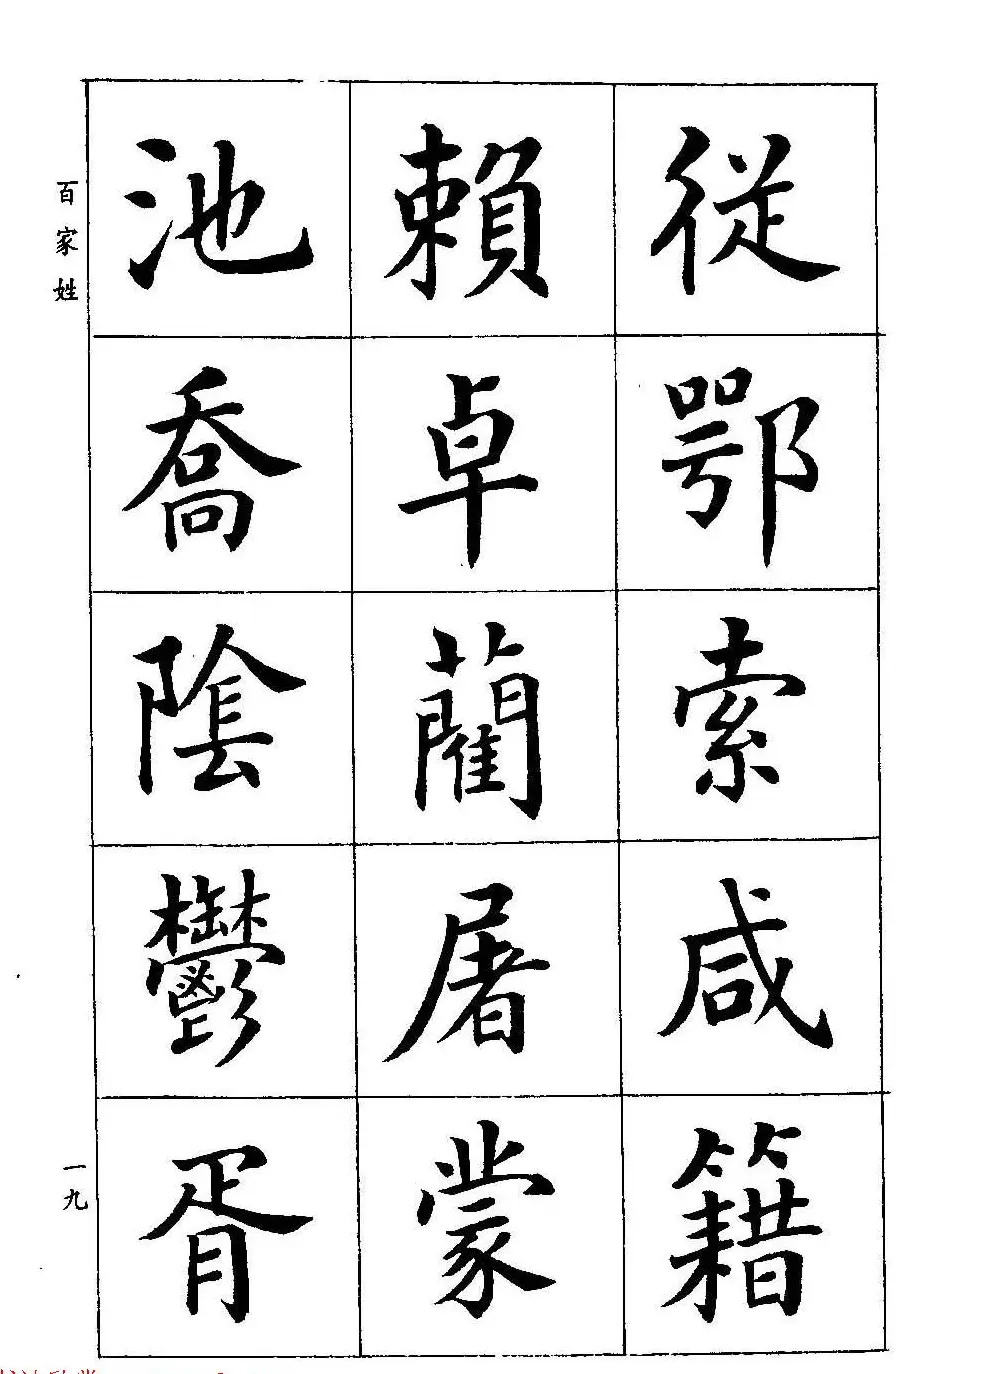 従鄂索咸籍
賴卓藺屠蒙
池喬陰鬱胥
百家姓
一九